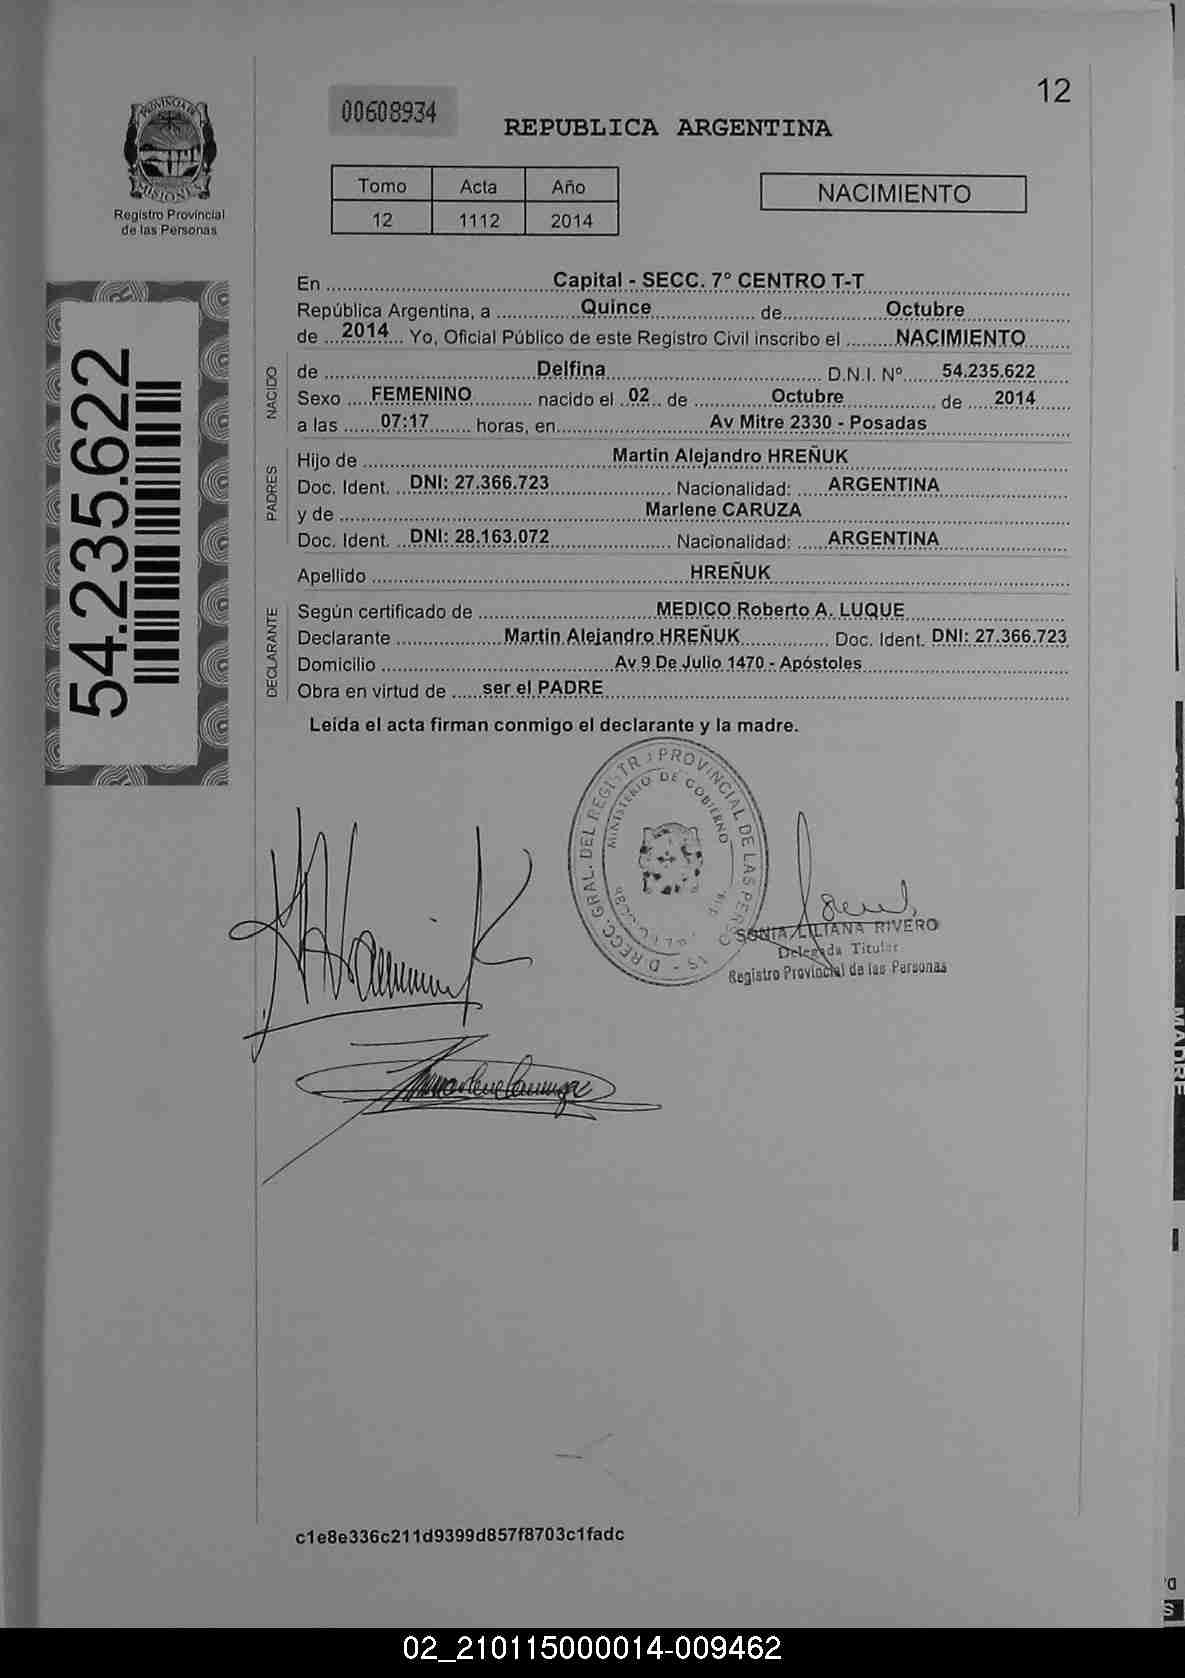 12
00608934
REPUBLICA ARGENTINA
PROVINCIA DE
MISIONES
Registro Provincial
de las Personas
Tomo Acta Año
12 1112 2014
NACIMIENTO
54.235.622
En Capital - SECC. 7° CENTRO T-T
República Argentina, a Quince de Octubre
de 2014 Yo, Oficial Público de este Registro Civil inscribo el NACIMIENTO
NACIDO
de Delfina D.N.I. N° 54.235.622
Sexo FEMENINO nacido el 02 de Octubre de 2014
a las 07:17 horas, en Av Mitre 2330 - Posadas
PADRES
Hijo de Martin Alejandro HREÑUK
Doc. Ident. DNI: 27.366.723 Nacionalidad: ARGENTINA
y de Marlene CARUZA
Doc. Ident. DNI: 28.163.072 Nacionalidad: ARGENTINA
Apellido HREÑUK
DECLARANTE
Según certificado de MEDICO Roberto A. LUQUE
Declarante Martin Alejandro HREÑUK Doc. Ident. DNI: 27.366.723
Domicilio Av 9 De Julio 1470 - Apóstoles
Obra en virtud de ser el PADRE
Leída el acta firman conmigo el declarante y la madre.
MINISTERIO DE GOBIERNO
SONIA LILIANA RIVERO
Delegada Titular
Registro Provincial de las Personas
MADRE
c1e8e336c211d9399d857f8703c1fadc
02_210115000014-009462